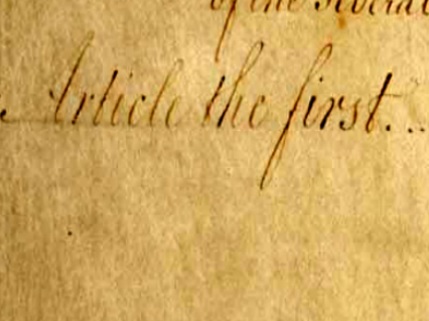 of the several
Article the first...